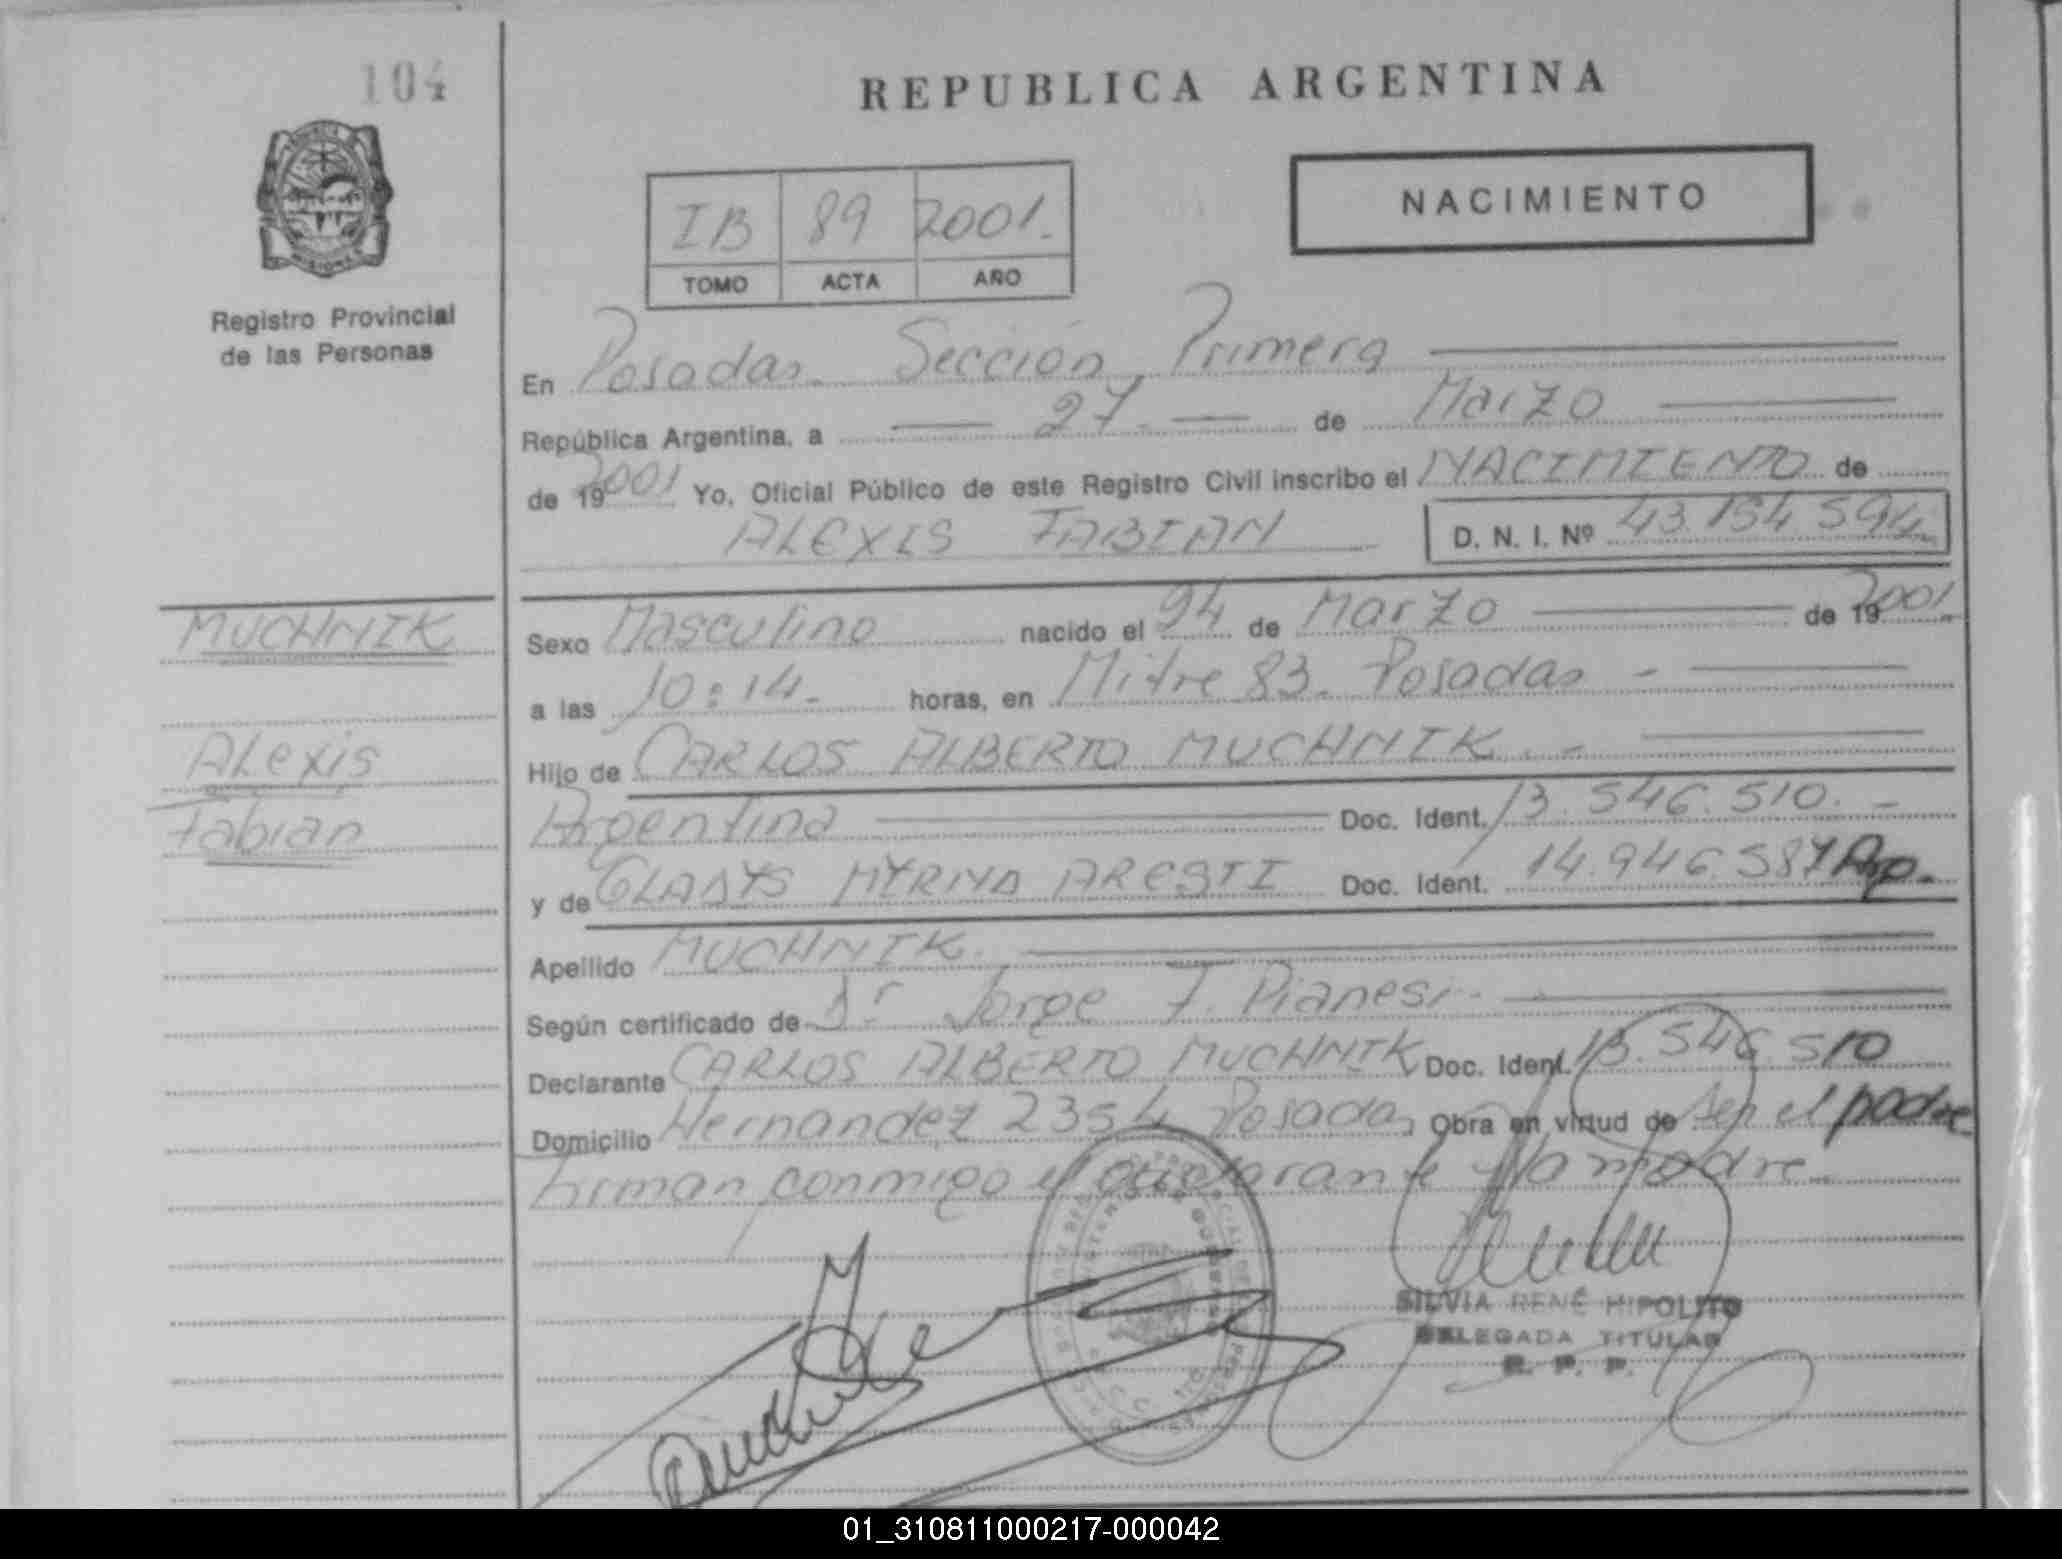 104
REPUBLICA ARGENTINA
NACIMIENTO
IB 89 2001.
TOMO ACTA AÑO
MISIONES
Registro Provincial
de las Personas
En Posadas. Sección Primera
República Argentina, a 27. de Marzo
de 19 2001 Yo, Oficial Público de este Registro Civil inscribo el NACIMIENTO de
ALEXIS FABIAN D. N. I. Nº 43.154.594
MUCHNIK
Alexis
Fabián
Sexo Masculino nacido el 24 de Marzo de 19 2001.
a las 10:14. horas, en Mitre 83. Posadas -
Hijo de CARLOS ALBERTO MUCHNIK. -
Argentina Doc. Ident. 13.546.510. -
y de GLADYS MYRNA ARESTI Doc. Ident. 14.946.587 Arg.
Apellido MUCHNIK.
Según certificado de Dr Jorge F. Pianesi.
Declarante CARLOS ALBERTO MUCHNIK Doc. Ident. 13.546.510
Domicilio Hernandez 2354 Posadas Obra en virtud de ser el padre
Firman conmigo el declarante y la madre.
SILVIA RENÉ HIPOLITO
DELEGADA TITULAR
R. P. P.
01_310811000217-000042